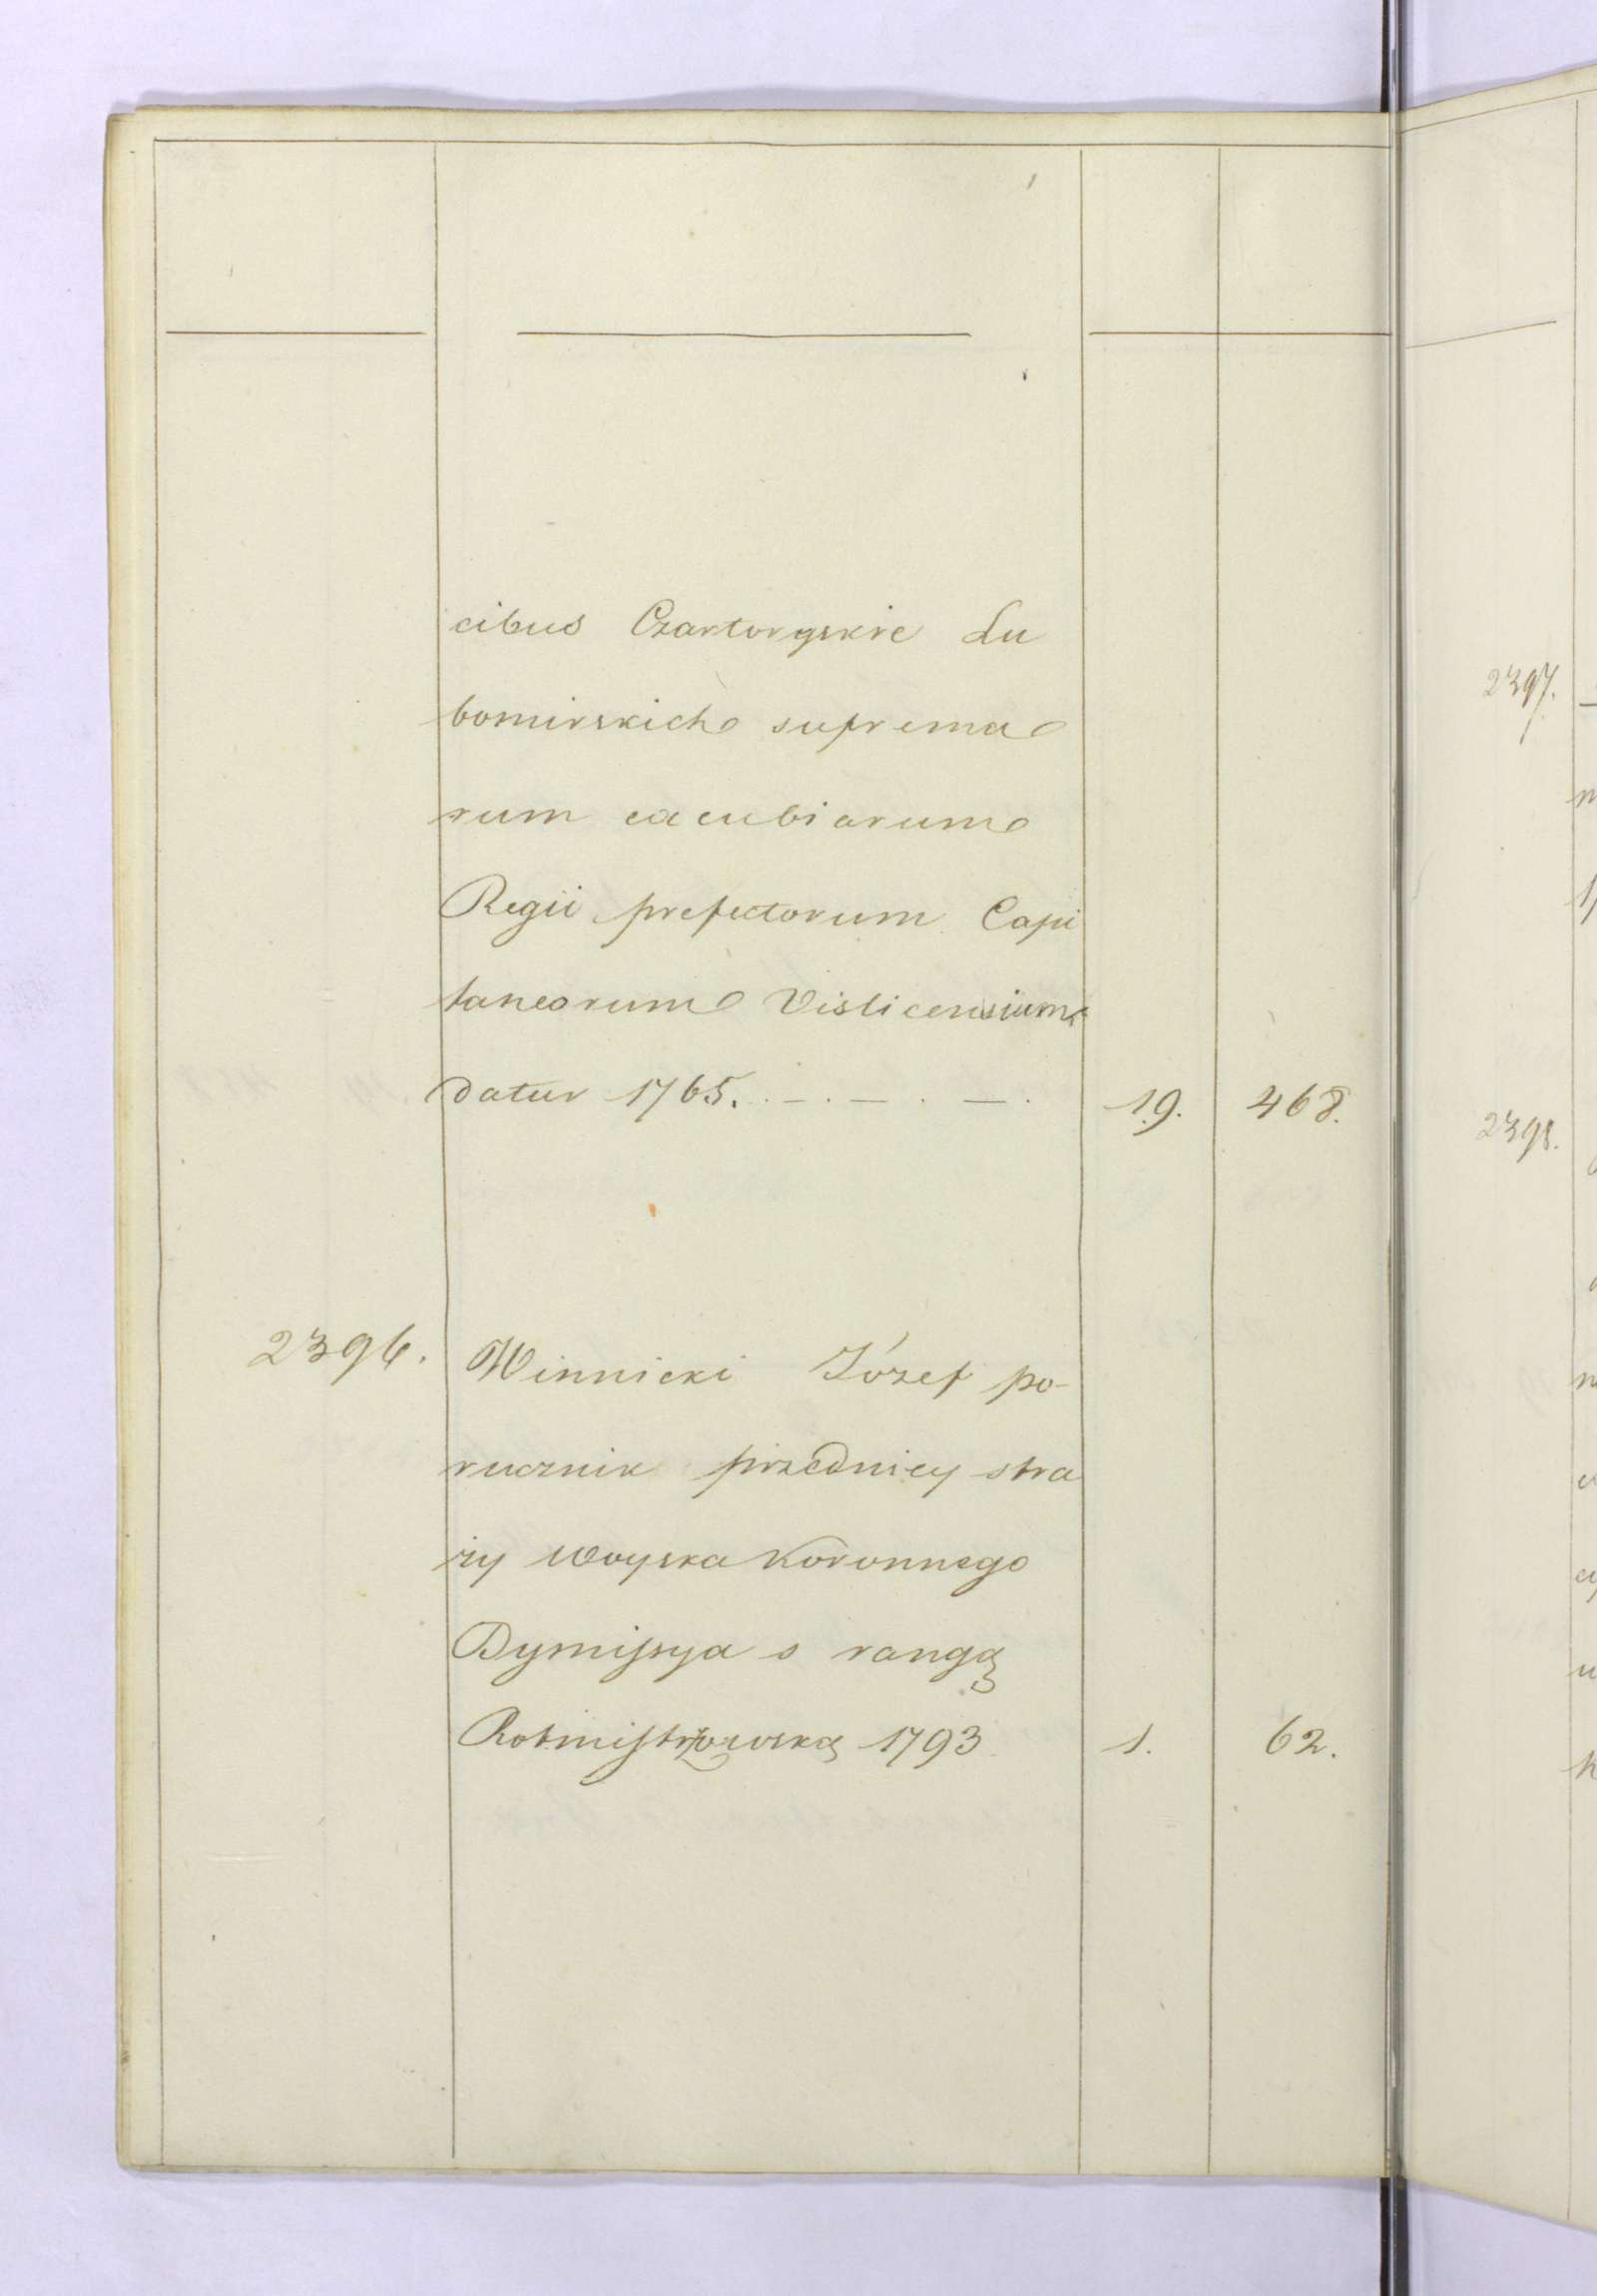 cibus Czartoryskie Lu
bomirskich suprema
rum excubiarum
Regii prefectorum Capi
taneorum Vislicensium
datur 1765. . — . — . — . 19. 468.
2396. Winnicki Józef po-
rucznik przedniey stra
ży woyska koronnego
Dymissya s rangą
Rotmistrzowską 1793 1. 62.
2397.
2398.